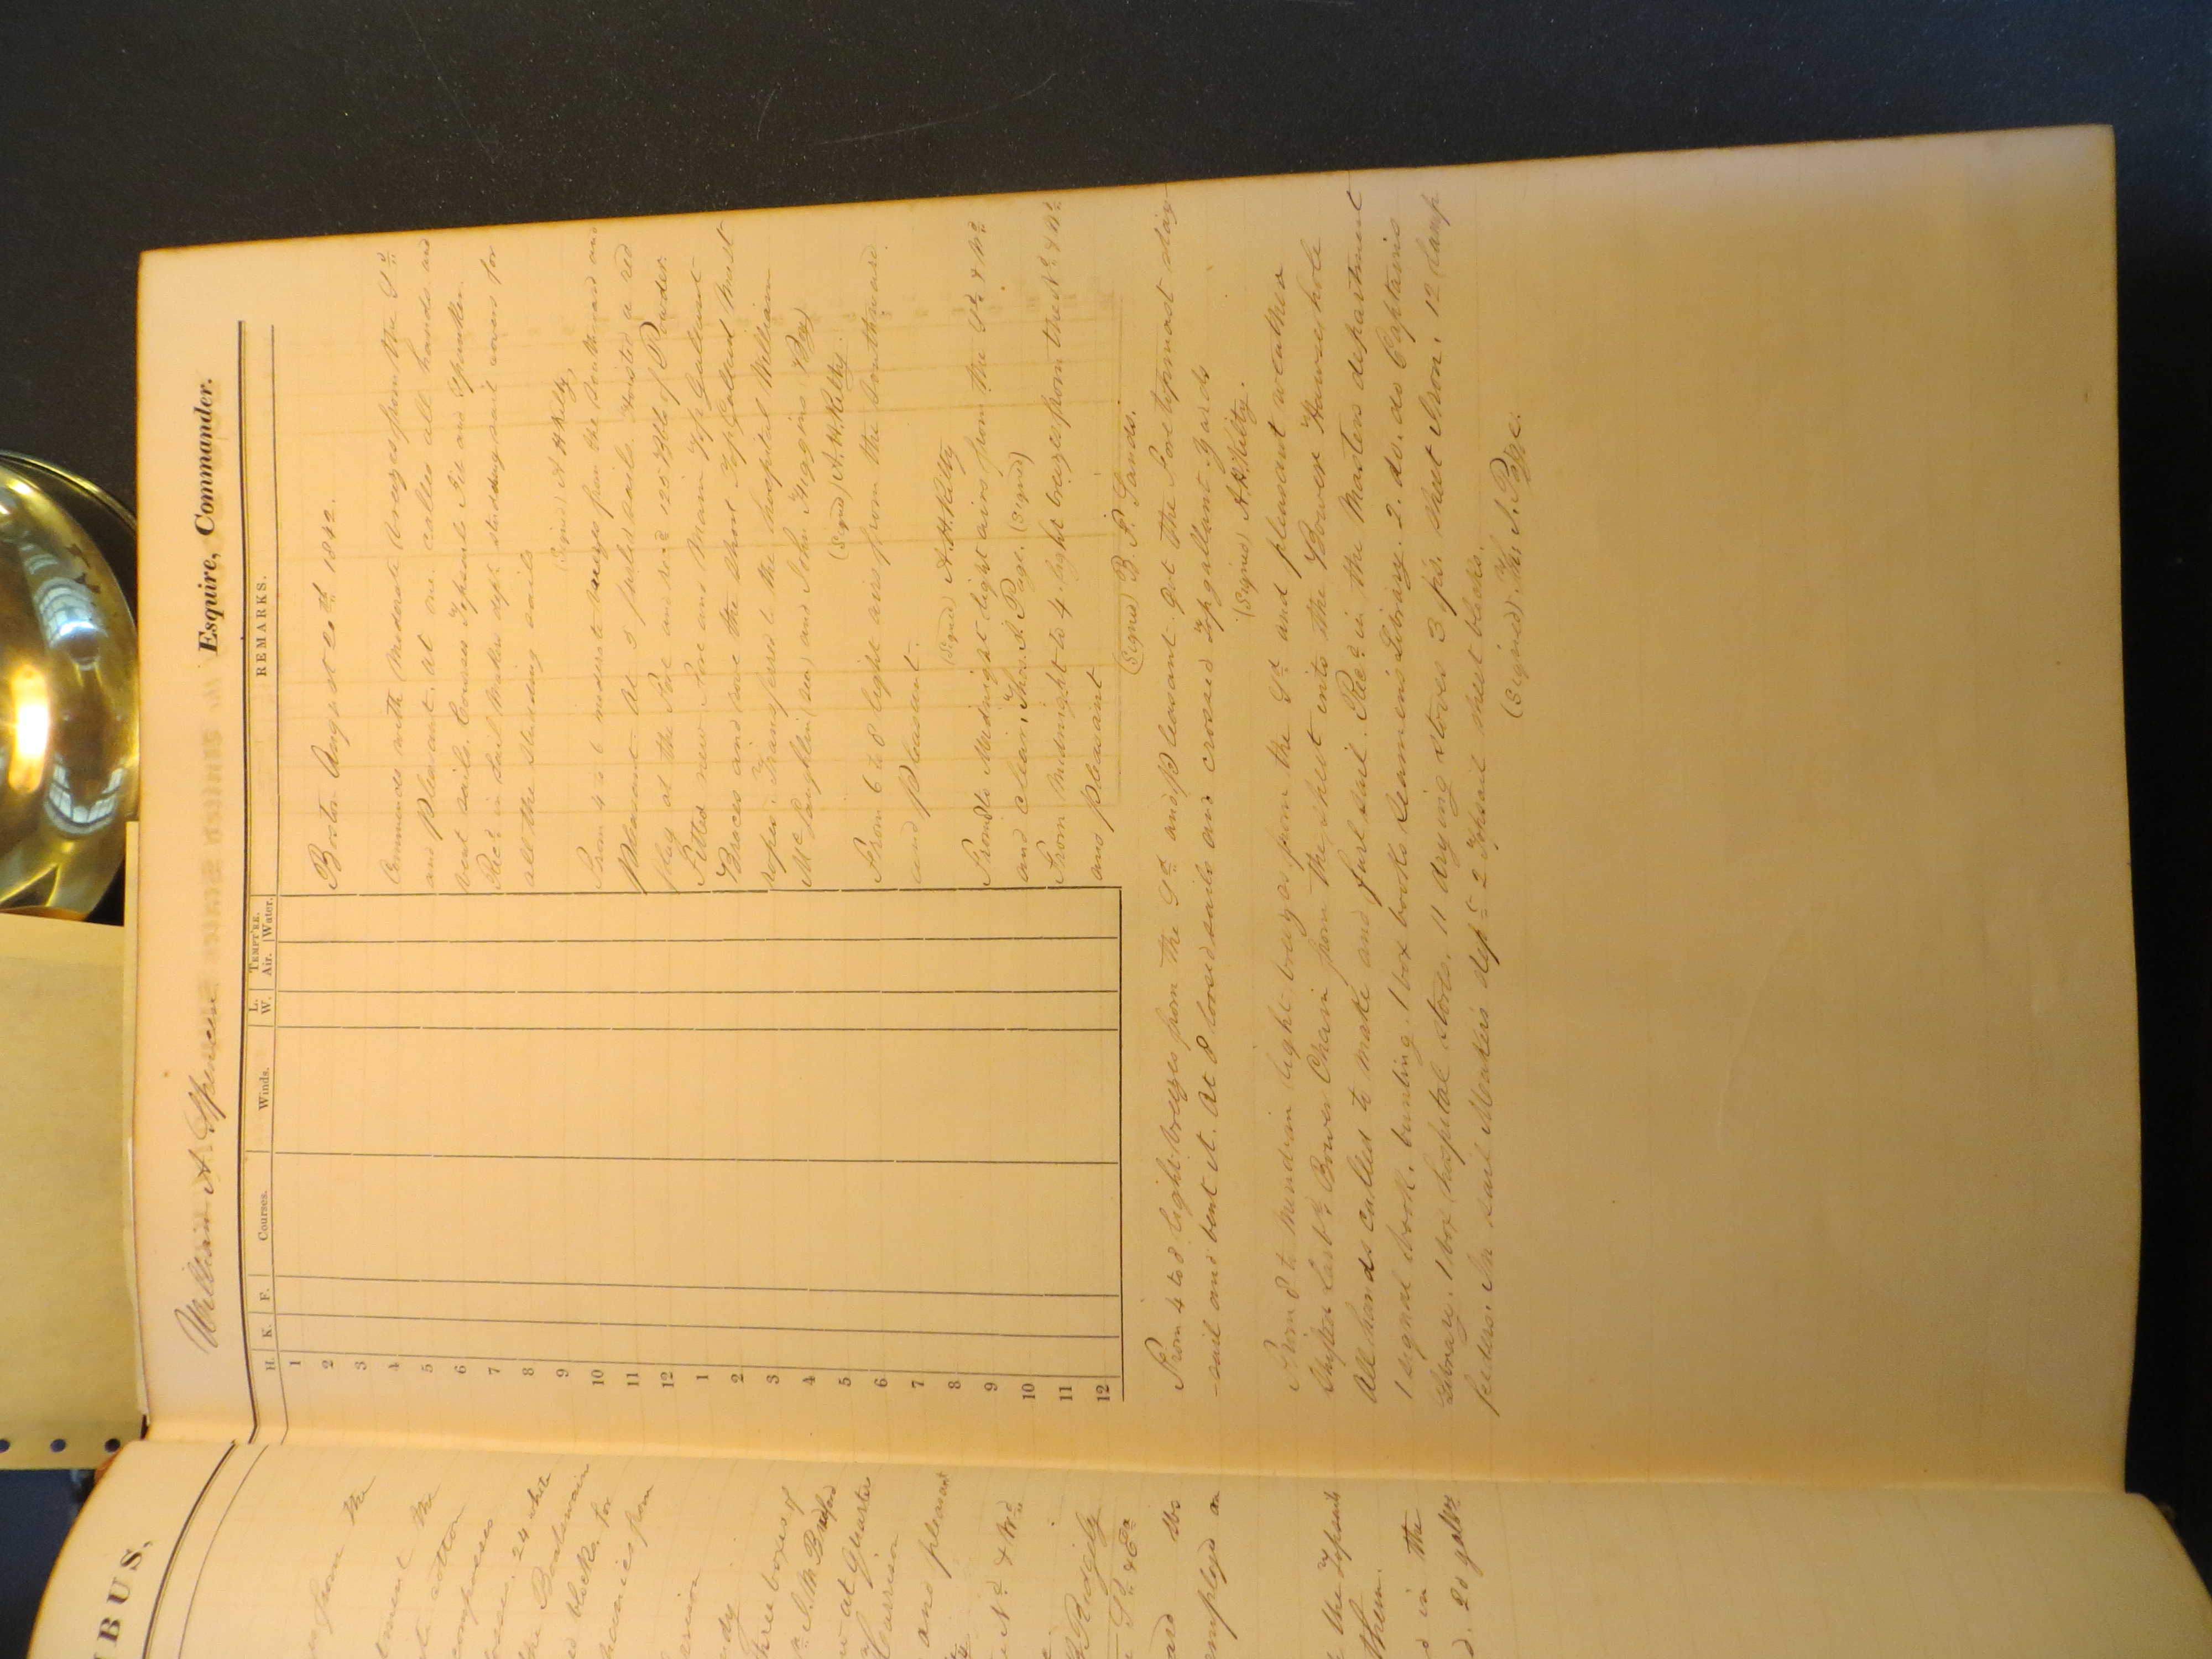 BUS,
s from the
tment the
cotton
compasses
24 white
the Boatswain
blocks for
mechanics from
Three boxes of
at Quarters
Garrison
and pleasant
Nd & Wd
Ridgely
Sd & Ed
employed on
the Topsails
them.
in the
20 galls
William A Spencer Esquire, Commander.
H. K. F. Courses. Winds. L. W. TEMPT'RE. Air. Water. REMARKS.
1
2
3
4
5
6
7
8
9
10
11
12
1
2
3
4
5
6
7
8
9
10
11
12
Boston August 20th 1842.
Commences with Moderate breezes from the Sd
and Pleasant. At one called all hands and
bent sails. Courses Topsails Jib and Spanker.
Recd in Sail Makers dept studding sail covers for
all the studding sails
(Signed) A H Kilty
From 4 to 6 moderate breezes from the Southward and
pleasant. At 5 furled sails. hoisted a red
flag at the Fore and recd 120 Bbls of Powder.
Fitted new Fore and Main Top Gallant
Braces and rove the Short Top Gallant Mast
ropes. Transferred to the hospital William
McLaughlin (sea) and John Higgins (Boy)
(Signed) A. H. Kilty.
From 6 to 8 light airs from the Southward.
and pleasant.
(Signed) A. H. Kilty
From 8 to Midnight light airs from the Sd & Wd
and clear. Thos. J. Page. (Signed)
From Midnight to 4 light breezes from the Nd & Wd
and pleasant
(Signed) B. F. Sands.
From 4 to 8 light breezes from the Sd and pleasant. got the Foretopmast stay
-sail and bent it. At 8 loosed sails and crossed Topgallant yards
(Signed) A. H. Kilty.
From 8 to Meridian light breezes from the Sd and pleasant weather
Shifted Larbd Bower Chain from the Sheet into the Bower Hawse hole
All hands called to make and furl sail. Recd in the Masters department
1 signal book, bunting. 1 box books Seamens Library. 2. do. do Captains
Library. 1 box hospital stores. 11 drying stoves 3 ps. sheet Iron. 12 Lamp
feeders. In Sail Makers dept 2 Topsail sheet blocks.
(Signed) Ths J. Page.